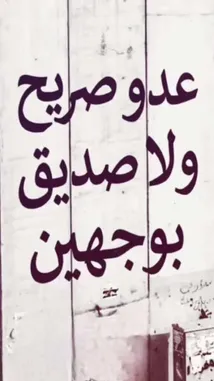 عدو صريح
ولا صديق
بوجهين